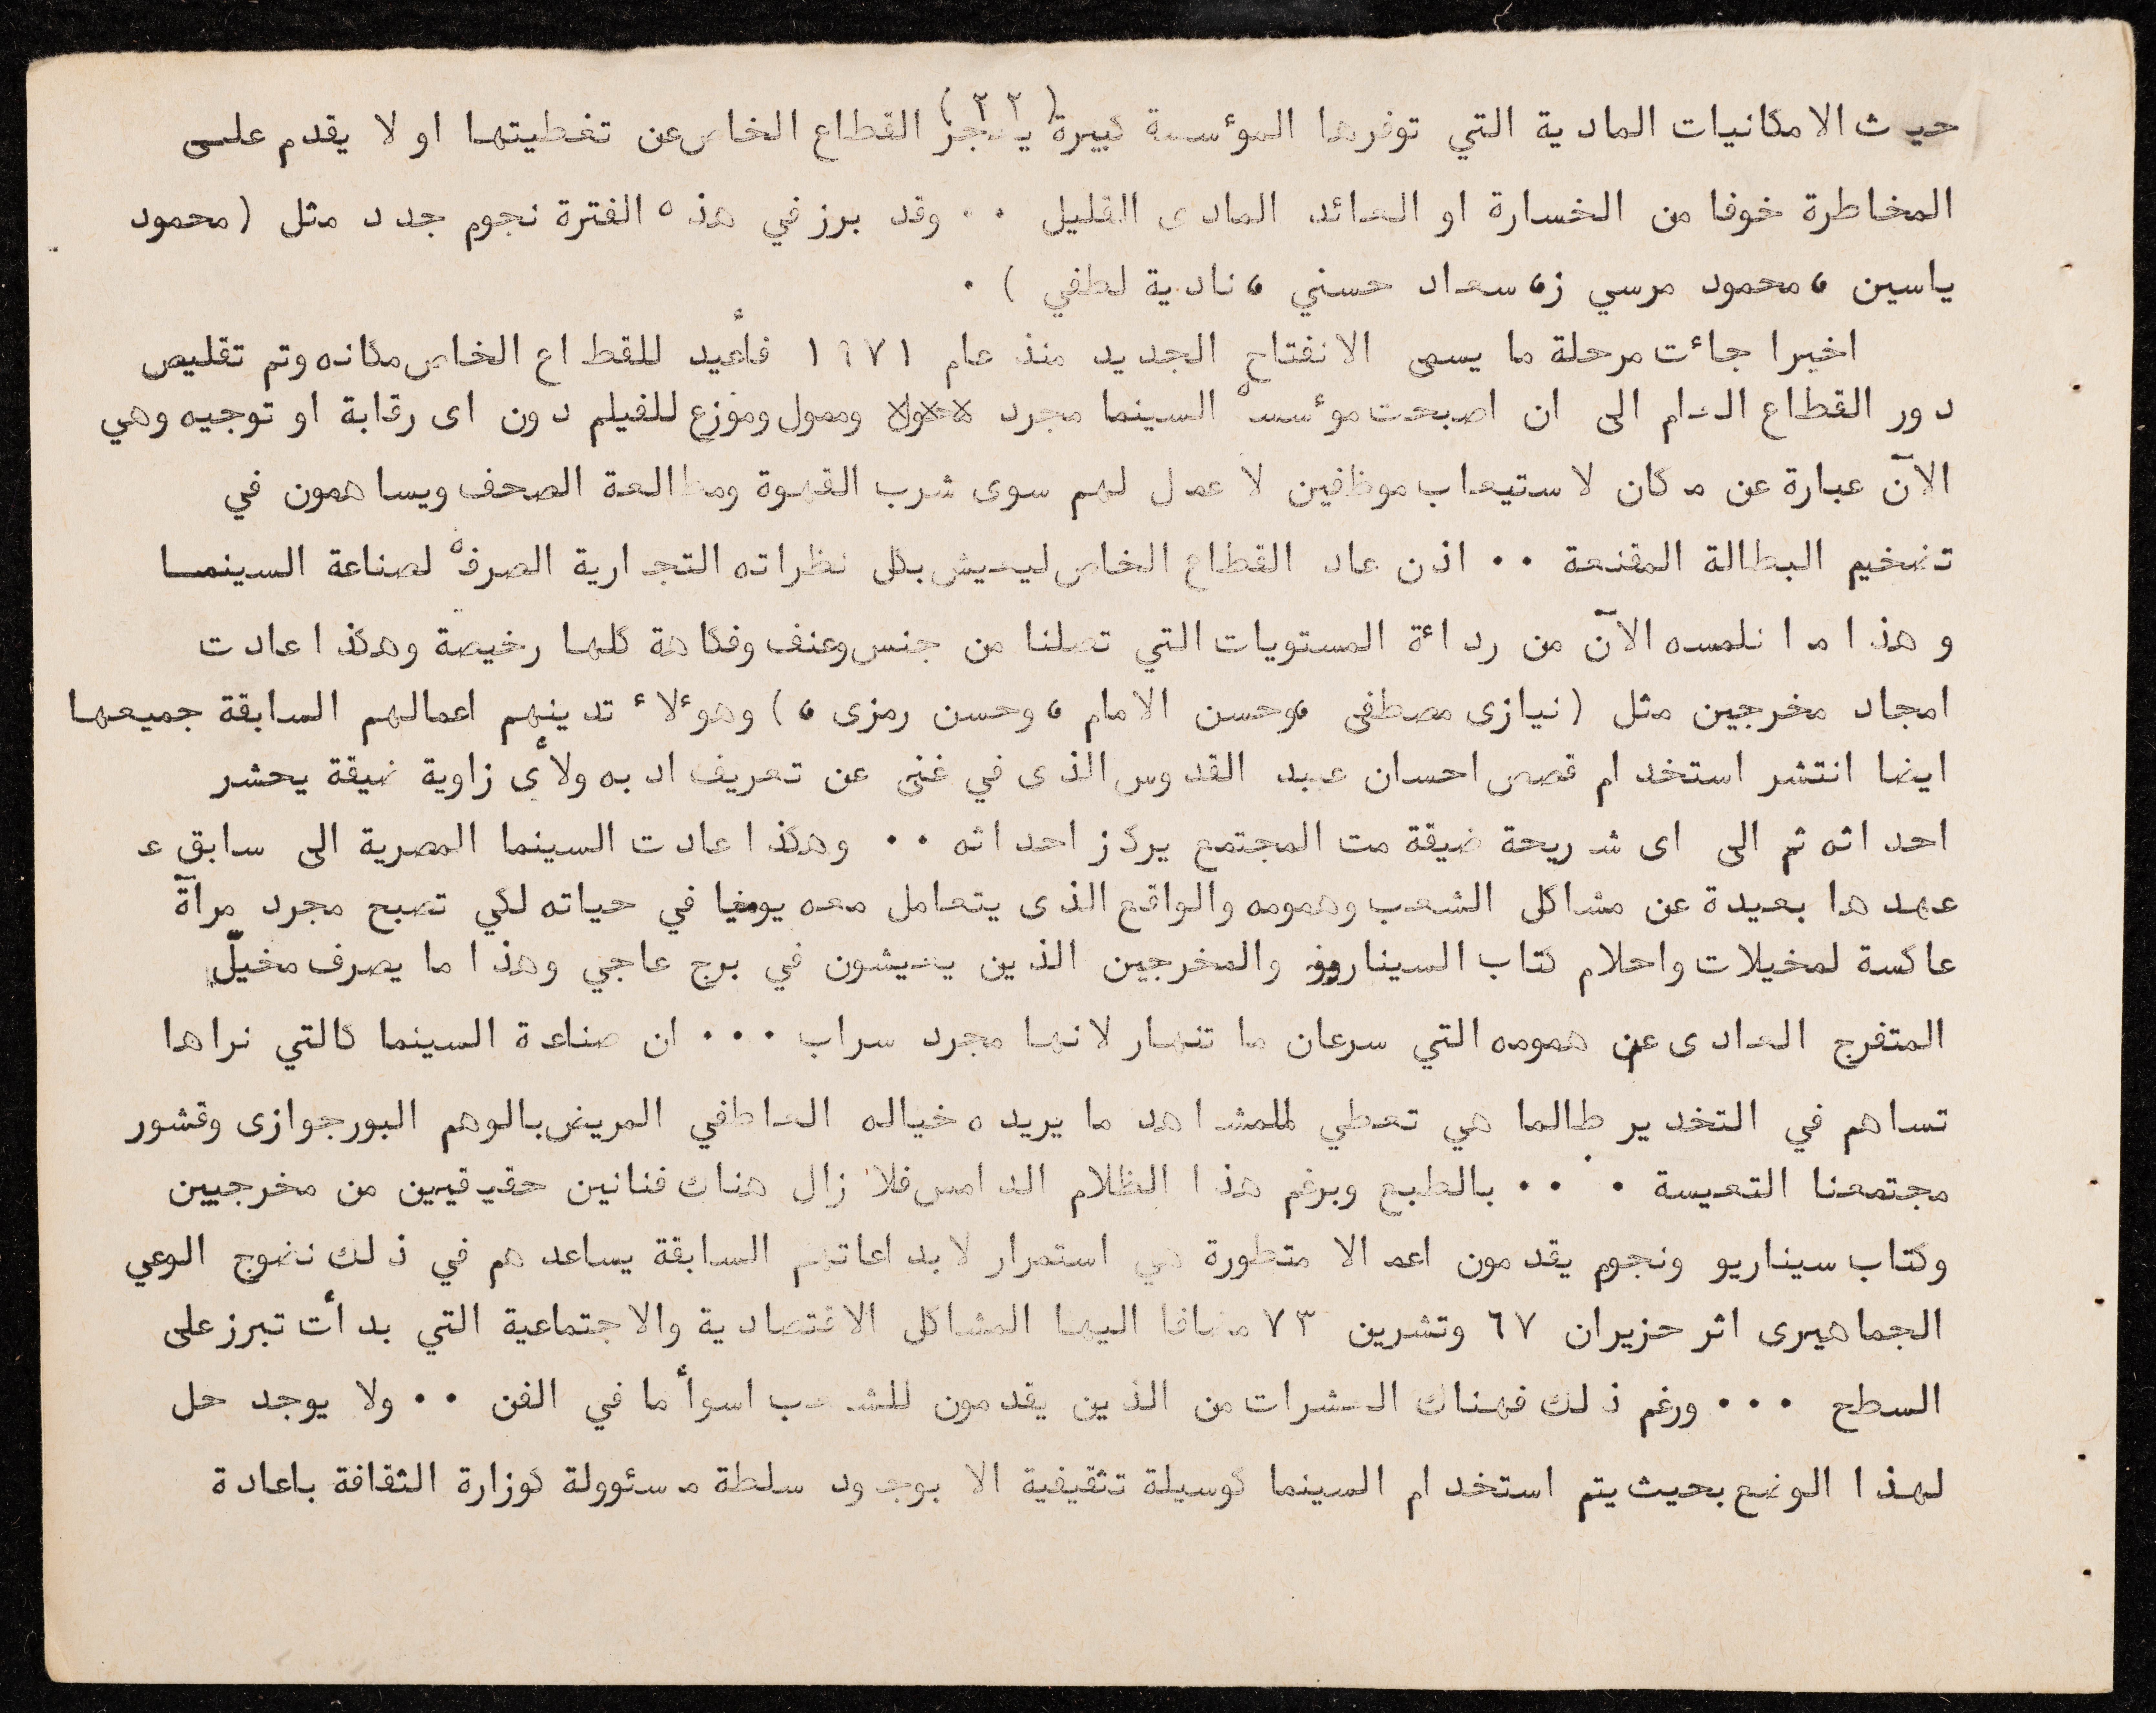 (٢٢)
حيث الامكانيات المادية التي توفرها المؤسسة كبيرة يعجز القطاع الخاص عن تغطيتها او لا يقدم على
المخاطرة خوفا من الخسارة او العائد المادى القليل ٠٠ وقد برز في هذه الفترة نجوم جدد مثل (محمود
ياسين ، محمود مرسي ز، سعاد حسني ، نادية لطفي ) ٠
اخيرا جائت مرحلة ما يسمى الانفتاح الجديد منذ عام ١٩٧١ فأعيد للقطاع الخاص مكانه وتم تقليص
دور القطاع العام الى ان اصبحت مؤسسة السينما مجرد وممول وموزع للفيلم دون اى رقابة او توجيه وهي
الآن عبارة عن مكان لاستيعاب موظفين لا عمل لهم سوى شرب القهوة ومطالعة الصحف ويساهمون في
تضخيم البطالة المقنعة ٠٠ اذن عاد القطاع الخاص ليعيش بكل نظراته التجارية الصرفه لصناعة السينما
وهذا ما نلمسه الآن من ردائة المستويات التي تصلنا من جنس وعنف وفكاهة كلها رخيصة وهكذا عادت
امجاد مخرجين مثل (نيازى مصطفى ،وحسن الامام ، وحسن رمزى ،) وهوءلاء تدينهم اعمالهم السابقة جميعها
ايضا انتشر استخدام قصص احسان عبد القدوس الذى في غنى عن تعريف ادبه ولأى زاوية ضيقة يحشر
احداثه ثم الى اى شريحة ضيقة مت المجتمع يركز احداثه ٠٠ وهكذا عادت السينما المصرية الى سابق ع
عهدها بعيدة عن مشاكل الشعب وهمومه والواقع الذى يتعامل معه يوميا في حياته لكي تصبح مجرد مرآة
عاكسة لمخيلات واحلام كتاب السيناريو والمخرجين الذين يعيشون في برج عاجي وهذا ما يصرف مخيلّ
المتفرج العادى عن همومه التي سرعان ما تنهار لانها مجرد سراب ٠٠٠ ان صناعة السينما كالتي نراها
تساهم في التخدير طالما هي تعطي للمشاهد ما يريده خياله العاطفي المريض بالوهم البورجوازى وقشور
مجتمعنا التعيسة ٠ ٠٠ بالطبع وبرغم هذا الظلام الدامس فلا زال هناك فنانين حقيقيين من مخرجيين
وكتاب سيناريو ونجوم يقدمون اعمالا متطورة هي استمرار لابداعاتهم السابقة يساعدهم في ذلك نضوج الوعي
الجماهيرى اثر حزيران ٦٧ وتشرين ٧٣ مضافا اليها المشاكل الاقتصادية والاجتماعية التي بدأت تبرز على
السطح ٠٠٠ ورغم ذلك فهناك العشرات من الذين يقدمون للشعب اسوأ ما في الفن ٠٠ ولا يوجد حل
لهذا الوضع بحيث يتم استخدام السينما كوسيلة تثقيفية الا بوجود سلطة مسئوولة كوزارة الثقافة باعادة